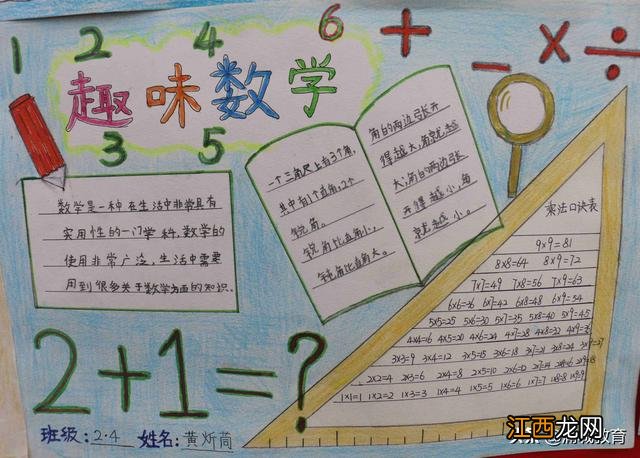 1 2 4 6 + - × ÷
趣味数学
3 5
数学是一种在生活中非常具有
实用性的一门学科,数学的
使用非常广泛,生活中需要
用到很多关于数学方面的知识.
一个三角尺上有3个角,
其中有1个直角,2个
锐角。
锐角比直角小,
钝角比直角大。
角的两边张开
得越大,角就越
大;角的两边张
开得越小,角
就越小。
乘法口诀表
9×9=81
8×8=64 8×9=72
7×7=49 7×8=56 7×9=63
6×6=36 6×7=42 6×8=48 6×9=54
5×5=25 5×6=30 5×7=35 5×8=40 5×9=45
4×4=16 4×5=20 4×6=24 4×7=28 4×8=32 4×9=36
3×3=9 3×4=12 3×5=15 3×6=18 3×7=21 3×8=24 3×9=27
2×2=4 2×3=6 2×4=8 2×5=10 2×6=12 2×7=14 2×8=16 2×9=18
1×1=1 1×2=2 1×3=3 1×4=4 1×5=5 1×6=6 1×7=7 1×8=8 1×9=9
2+1=?
班级:2.4 姓名:黄炘茼
江西龙网